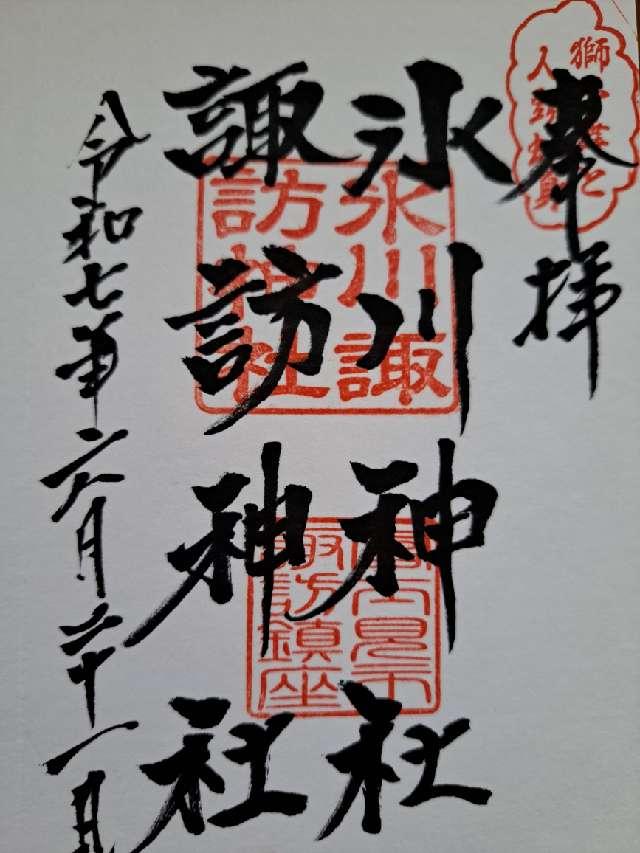 奉拝
氷川神社
諏訪神社
令和七年六月二十一日
氷川諏
訪神社
諏訪鎮座